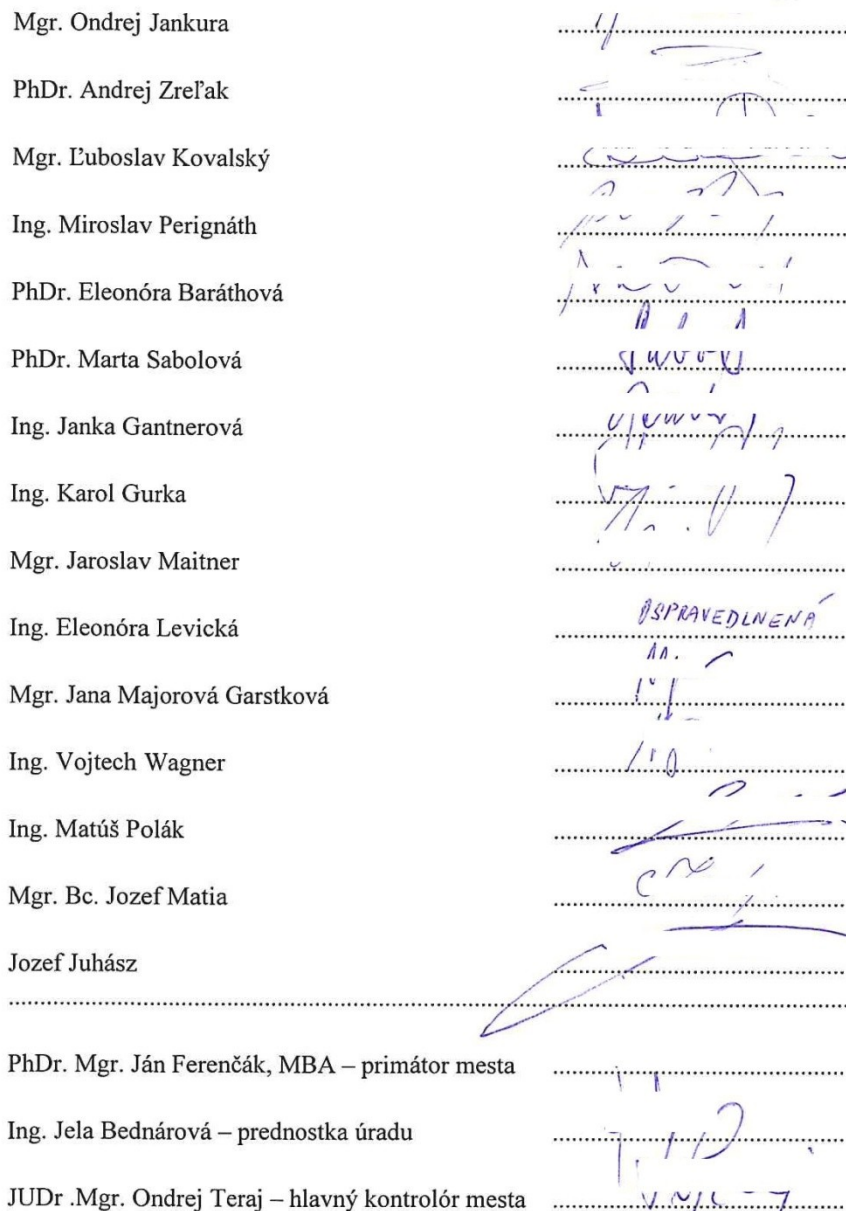 Mgr. Ondrej Jankura
PhDr. Andrej Zreľak
Mgr. Ľuboslav Kovalský
Ing. Miroslav Perignáth
PhDr. Eleonóra Baráthová
PhDr. Marta Sabolová
Ing. Janka Gantnerová
Ing. Karol Gurka
Mgr. Jaroslav Maitner
Ing. Eleonóra Levická OSPRAVEDLNENÁ
Mgr. Jana Majorová Garstková
Ing. Vojtech Wagner
Ing. Matúš Polák
Mgr. Bc. Jozef Matia
Jozef Juhász
PhDr. Mgr. Ján Ferenčák, MBA – primátor mesta
Ing. Jela Bednárová – prednostka úradu
JUDr .Mgr. Ondrej Teraj – hlavný kontrolór mesta